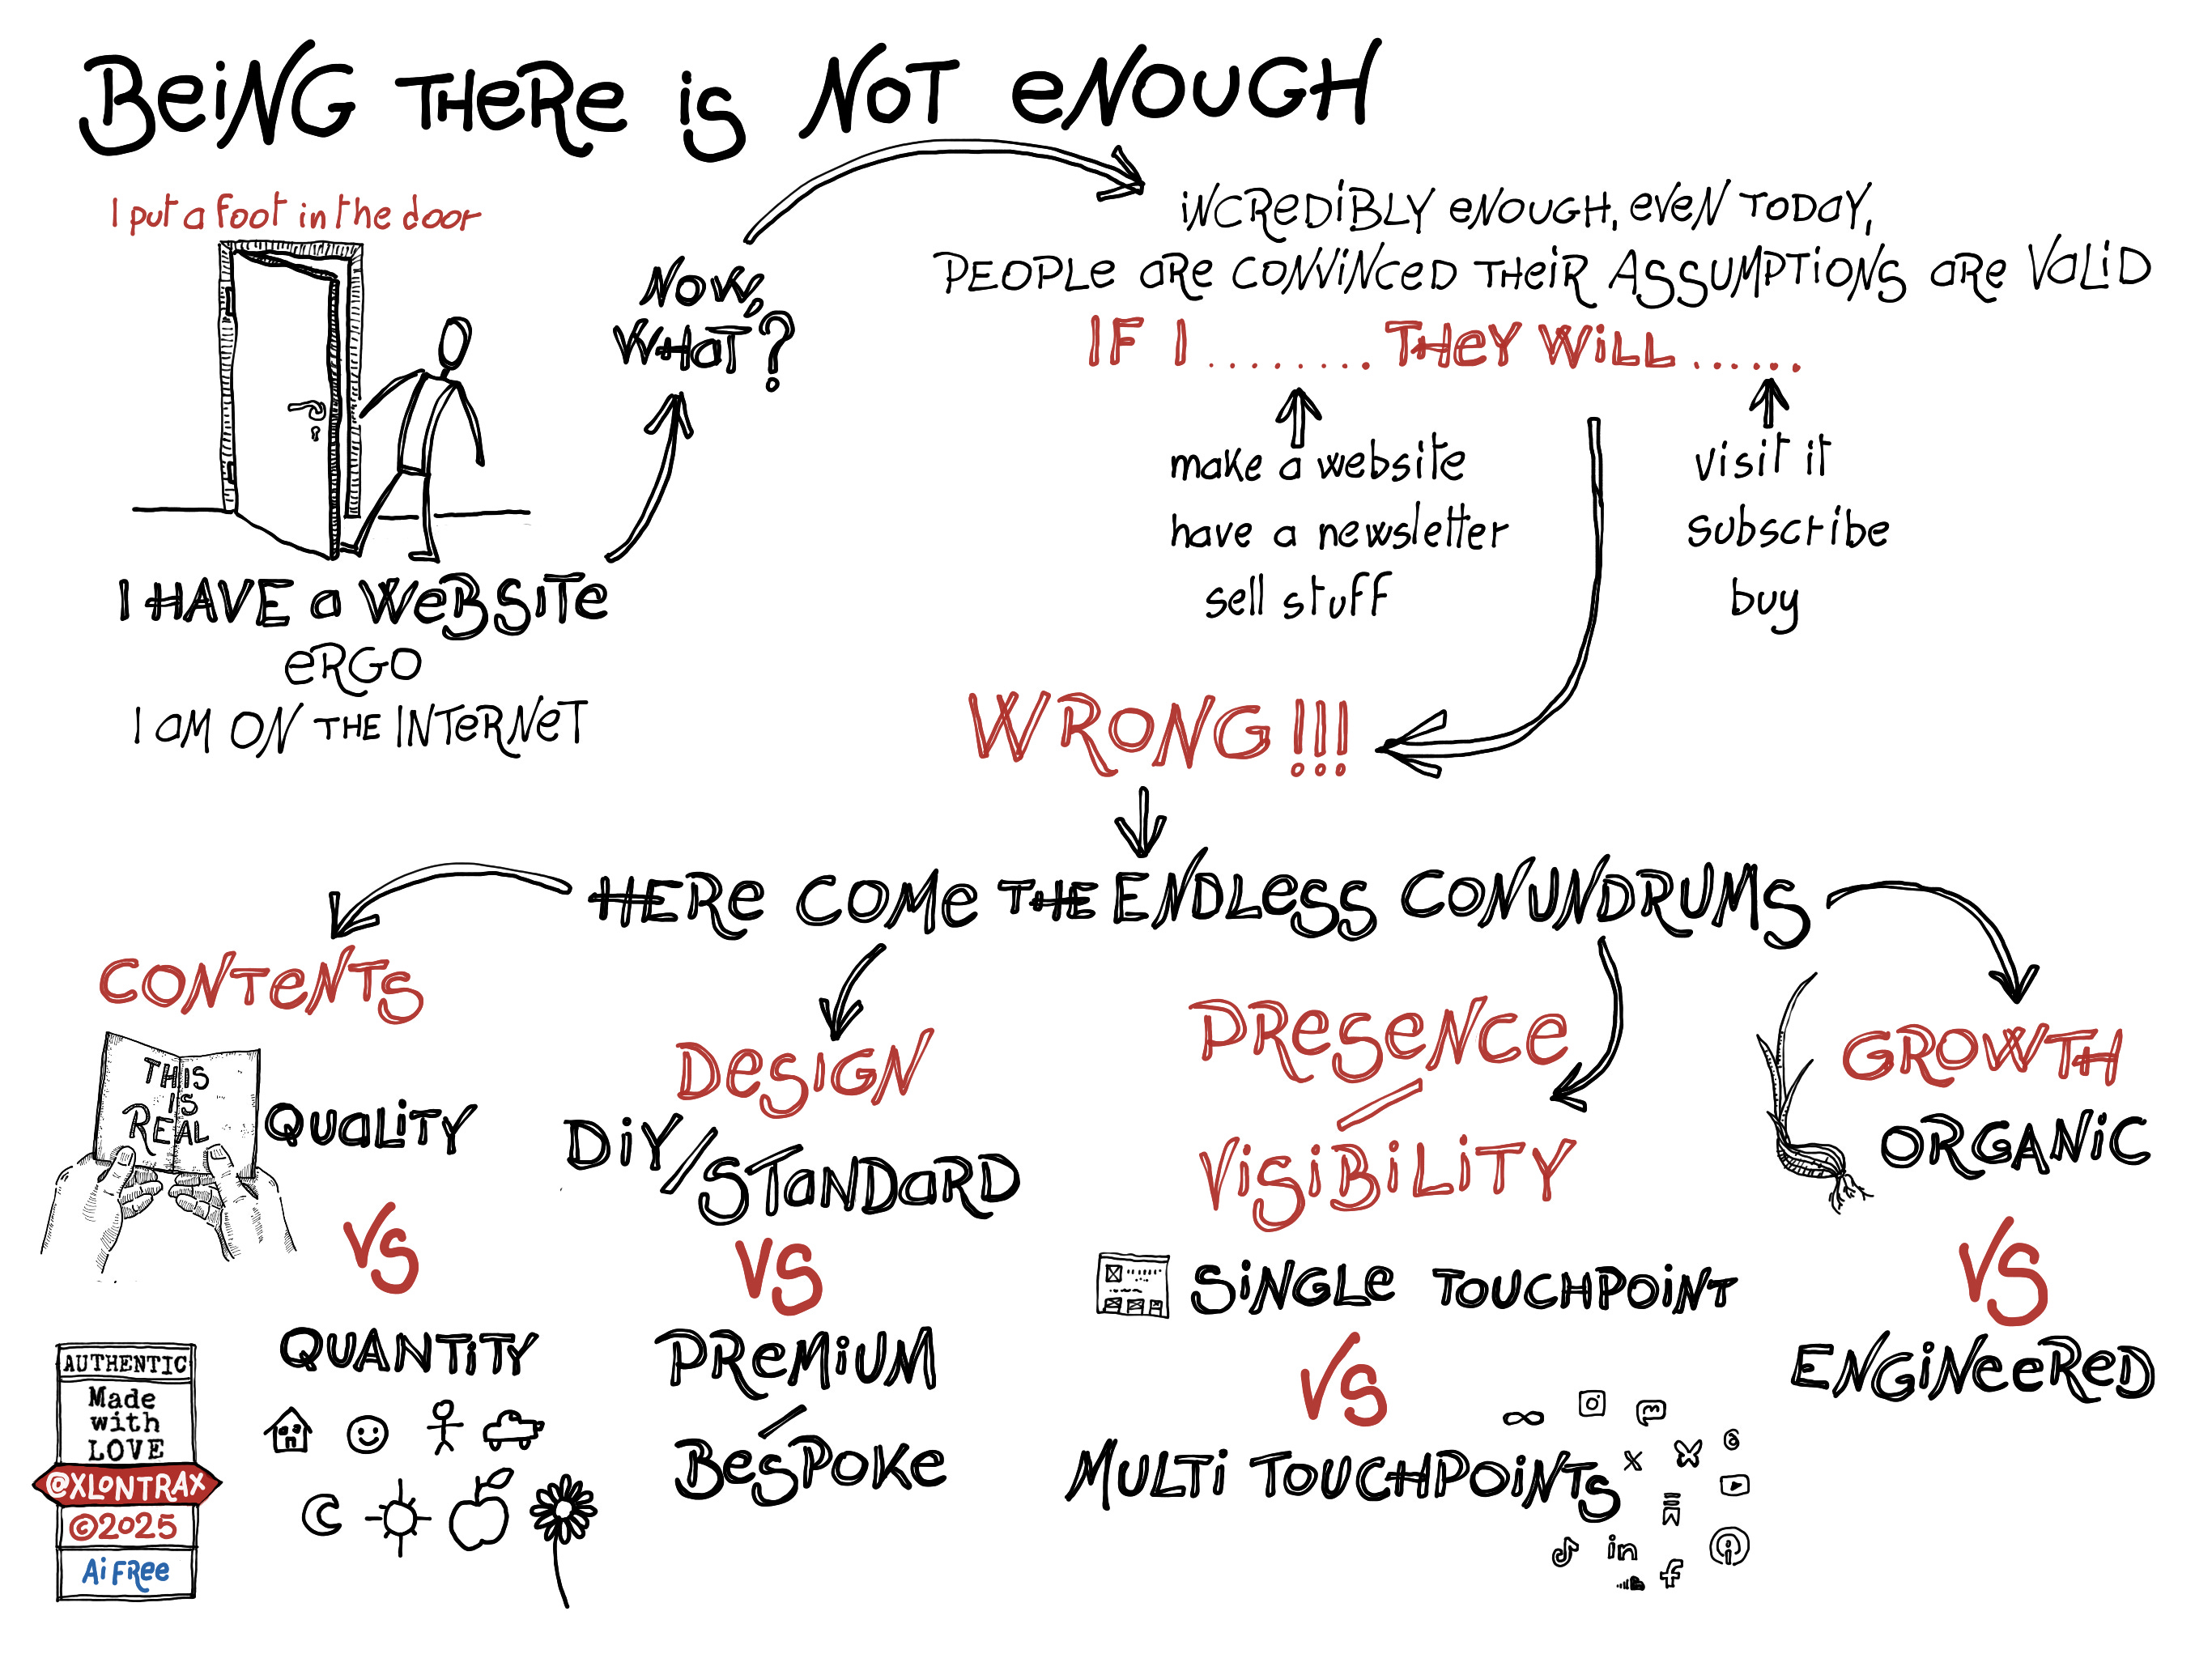 BeiNG THeRe is NOT eNOUGH
I put a foot in the door
NOW,
WHaT?
iNCReDiBLY eNOUGH, eVeN TODaY,
PEOPLe aRe CONViNCeD THeiR ASSUMPTiONS aRe VaLiD
IF I ........ THeY WiLL ......
make a website
visit it
have a newsletter
subscribe
sell stuff
buy
I HAVE a WeBSiTe
eRGO
I aM ON THE INTeRNeT
WRONG!!!
HERe COMe THE ENDLeSS CONUNDRUMS
CONTeNTS
THIS
IS
REAL
QUaLiTY
VS
QUANTiTY
DeSiGN
DiY/STaNDaRD
VS
PReMiUM
/
BeSPOKe
PReSeNCe
/
ViSiBiLiTY
SiNGLe TOUCHPOiNT
VS
MULTi TOUCHPOiNTS
in
GROWTH
ORGANiC
VS
ENGiNeeReD
AUTHENTIC
Made
with
LOVE
@XLONTRAX
©2025
Ai FRee